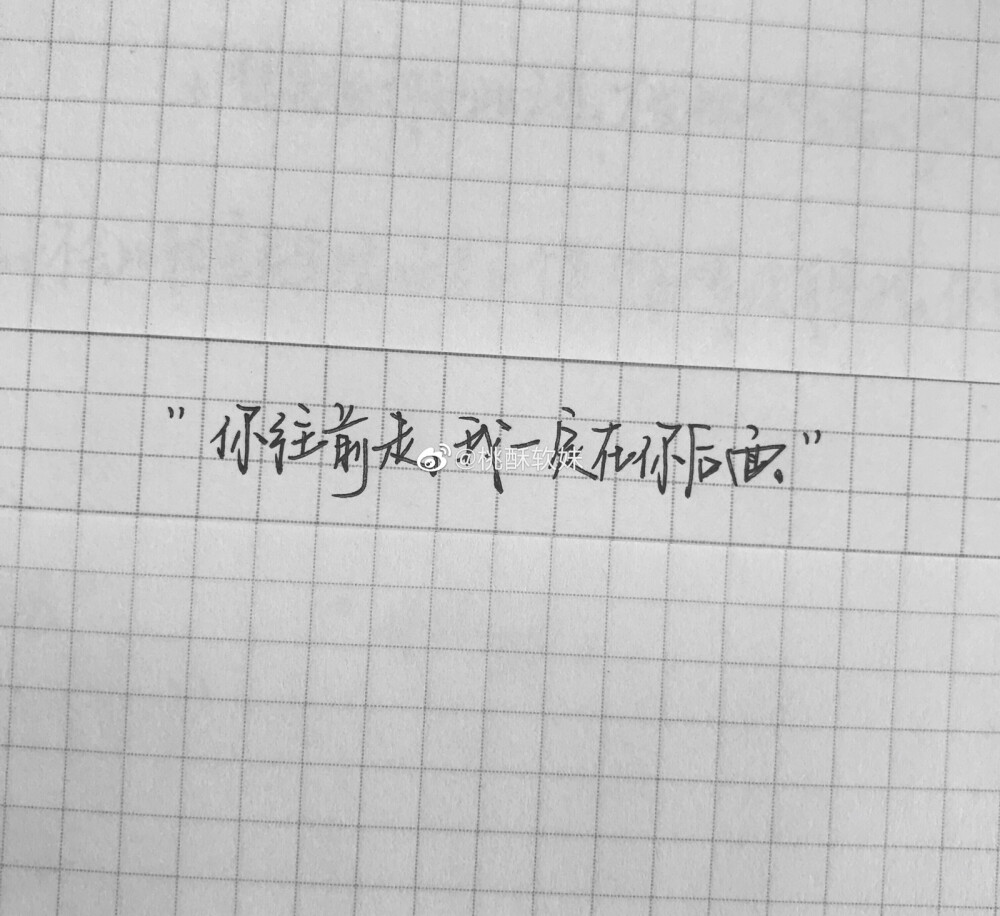 "你往前走、我一定在你后面、"
@桃酥软妹